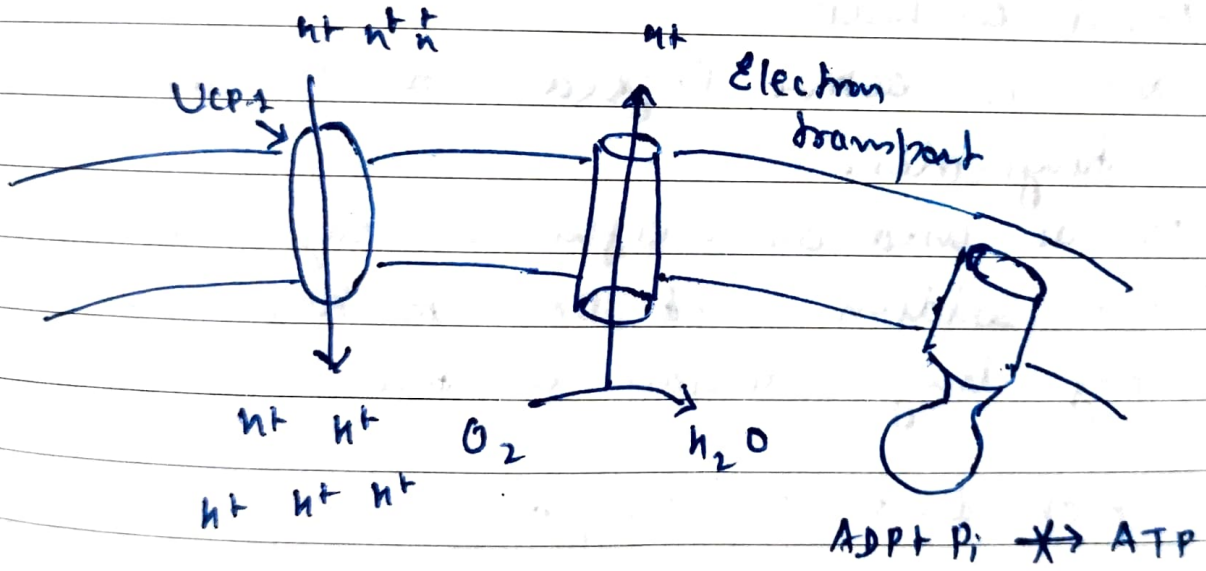 H+ H+ H+
H+
UCP-1
Electron
transport
H+ H+
O2
H2O
H+ H+ H+
ADP+ Pi → ATP